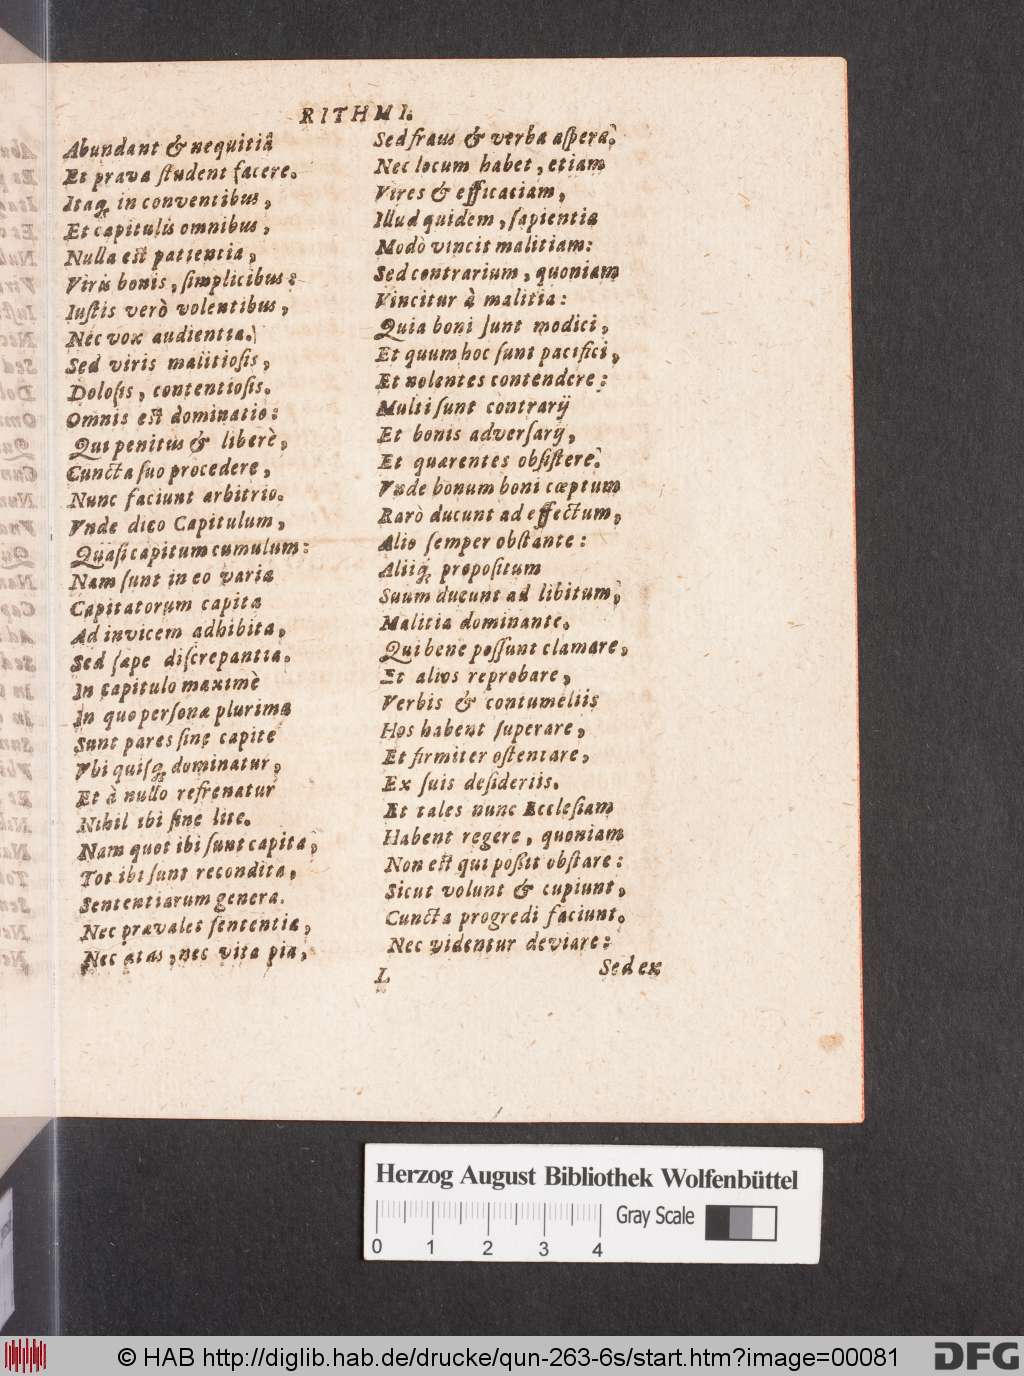 RITHMI.
Abundant & nequitiâ
Et prava student facere.
Itaq; in conventibus,
Et capitulis omnibus,
Nulla est patientia,
Viris bonis, simplicibus:
Iustis verò volentibus,
Nec vox audientia.
Sed viris malitiosis,
Dolosis, contentiosis.
Omnis est dominatio:
Qui penitus & liberè,
Cuncta suo procedere,
Nunc faciunt arbitrio.
Vnde dico Capitulum,
Quasi capitum cumulum:
Nam sunt in eo varia
Capitatorum capita
Ad invicem adhibita,
Sed sæpe discrepantia.
In capitulo maximè
In quo personæ plurimæ
Sunt pares sine capite
Vbi quisq; dominatur,
Et à nullo refrenatur
Nihil ibi fine lite.
Nam quot ibi sunt capita,
Tot ibi sunt recondita,
Sententiarum genera.
Nec prævalet sententia,
Nec ætas, nec vita pia,
Sed fraus & verba aspera.
Nec locum habet, etiam
Vires & efficaciam,
Illud quidem, sapientia
Modò vincit malitiam:
Sed contrarium, quoniam
Vincitur à malitia:
Quia boni sunt modici,
Et quum hoc sunt pacifici,
Et nolentes contendere:
Multi sunt contrarij
Et bonis adversarij,
Et quærentes obsistere.
Vnde bonum boni cœptum
Rarò ducunt ad effectum,
Alio semper obstante:
Aliiq; propositum
Suum ducunt ad libitum,
Malitia dominante.
Qui bene possunt clamare,
Et alios reprobare,
Verbis & contumeliis
Hos habent superare,
Et firmiter ostentare,
Ex suis desideriis.
Et tales nunc Ecclesiam
Habent regere, quoniam
Non est qui possit obstare:
Sicut volunt & cupiunt,
Cuncta progredi faciunt.
Nec videntur deviare:
L
Sed ex
Herzog August Bibliothek Wolfenbüttel
Gray Scale
0 1 2 3 4
© HAB http://diglib.hab.de/drucke/qun-263-6s/start.htm?image=00081
DFG